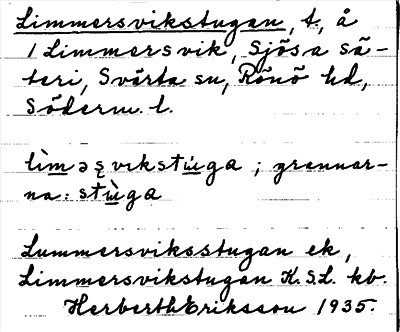 Limmersvikstugan, t., å
/ Limmersvik, Sjösa sä-
teri, Svärta sn, Rönö hd,
Söderm. l.
lìm̲əʂvikstɯ̀ga ; grannar-
na: stɯ̀ga
Lummersviksstugan ek,
Limmersvikstugan K.S.L. kb.
Herberth Eriksson 1935.